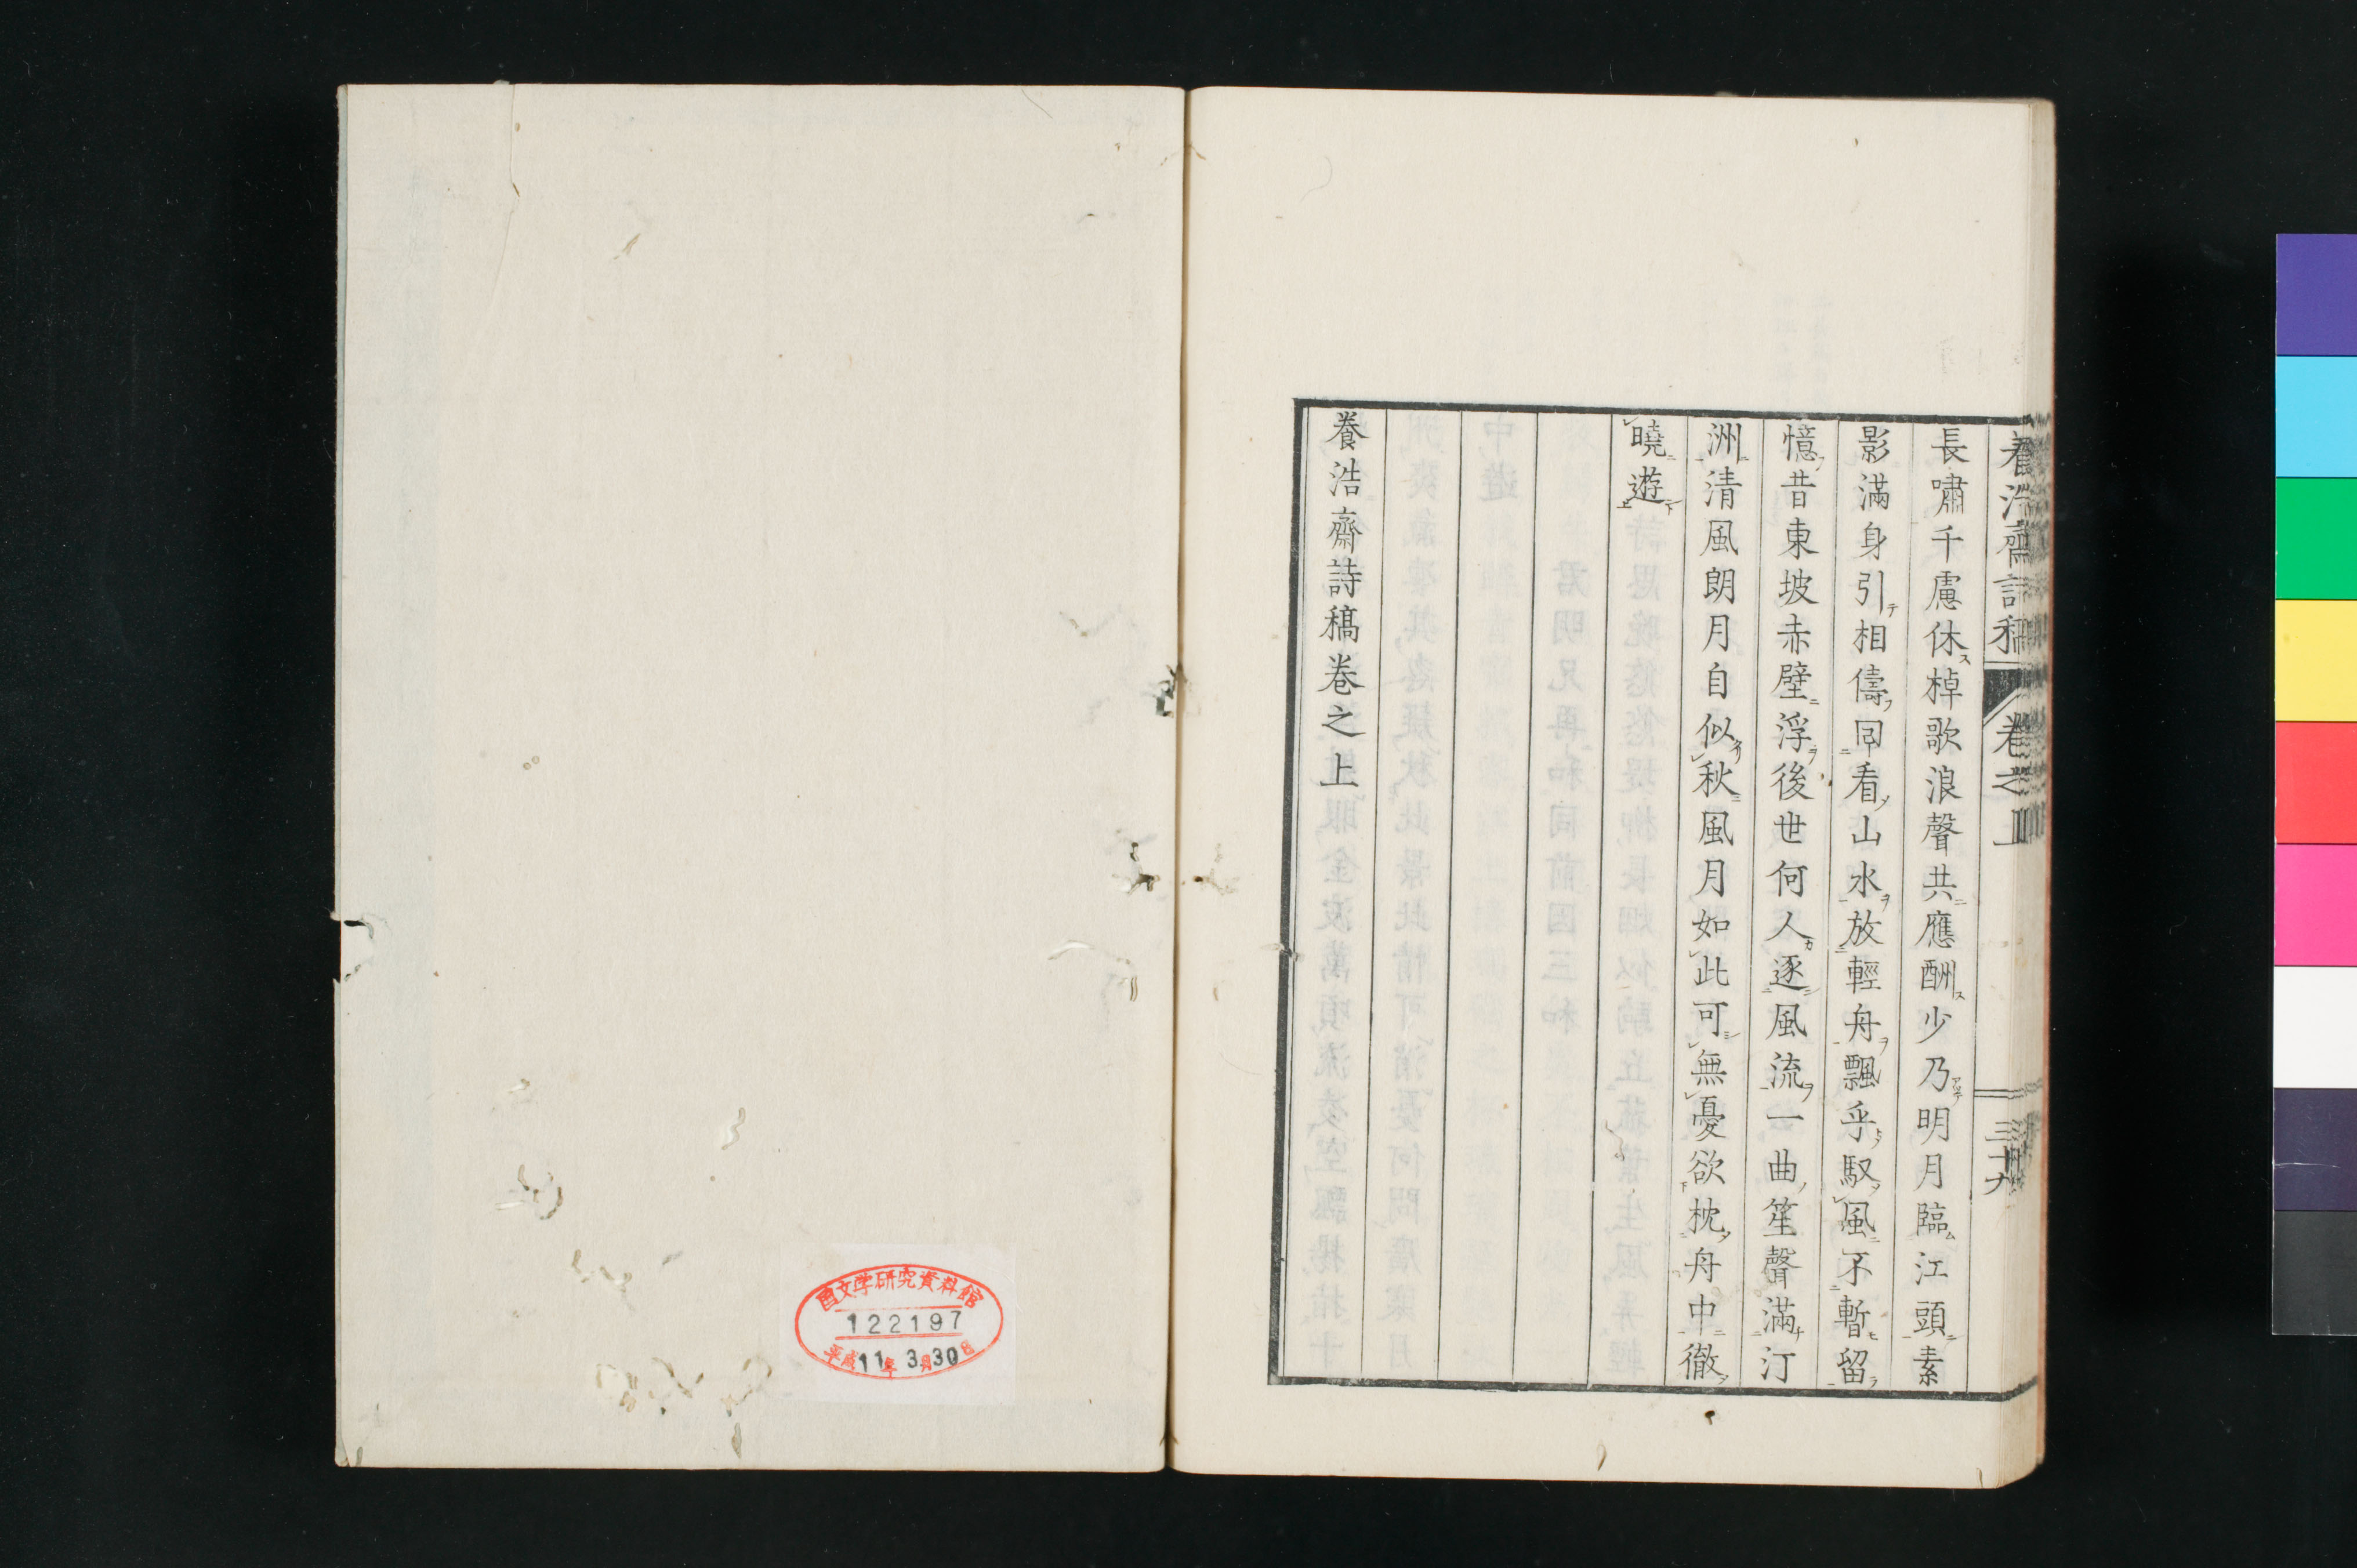 養浩齋詩稿 卷之上 三十九
長嘯千慮休棹歌浪聲共應酬少乃明月臨江頭素
影滿身引相儔同看山水放輕舟飄乎馭風不暫留
憶昔東坡赤壁浮後世何人逐風流一曲笙聲滿汀
洲清風朗月自似秋風月如此可無憂欲枕舟中徹
曉遊
養浩齋詩稿卷之上
国文学研究資料館
122197
平成11年3月30日